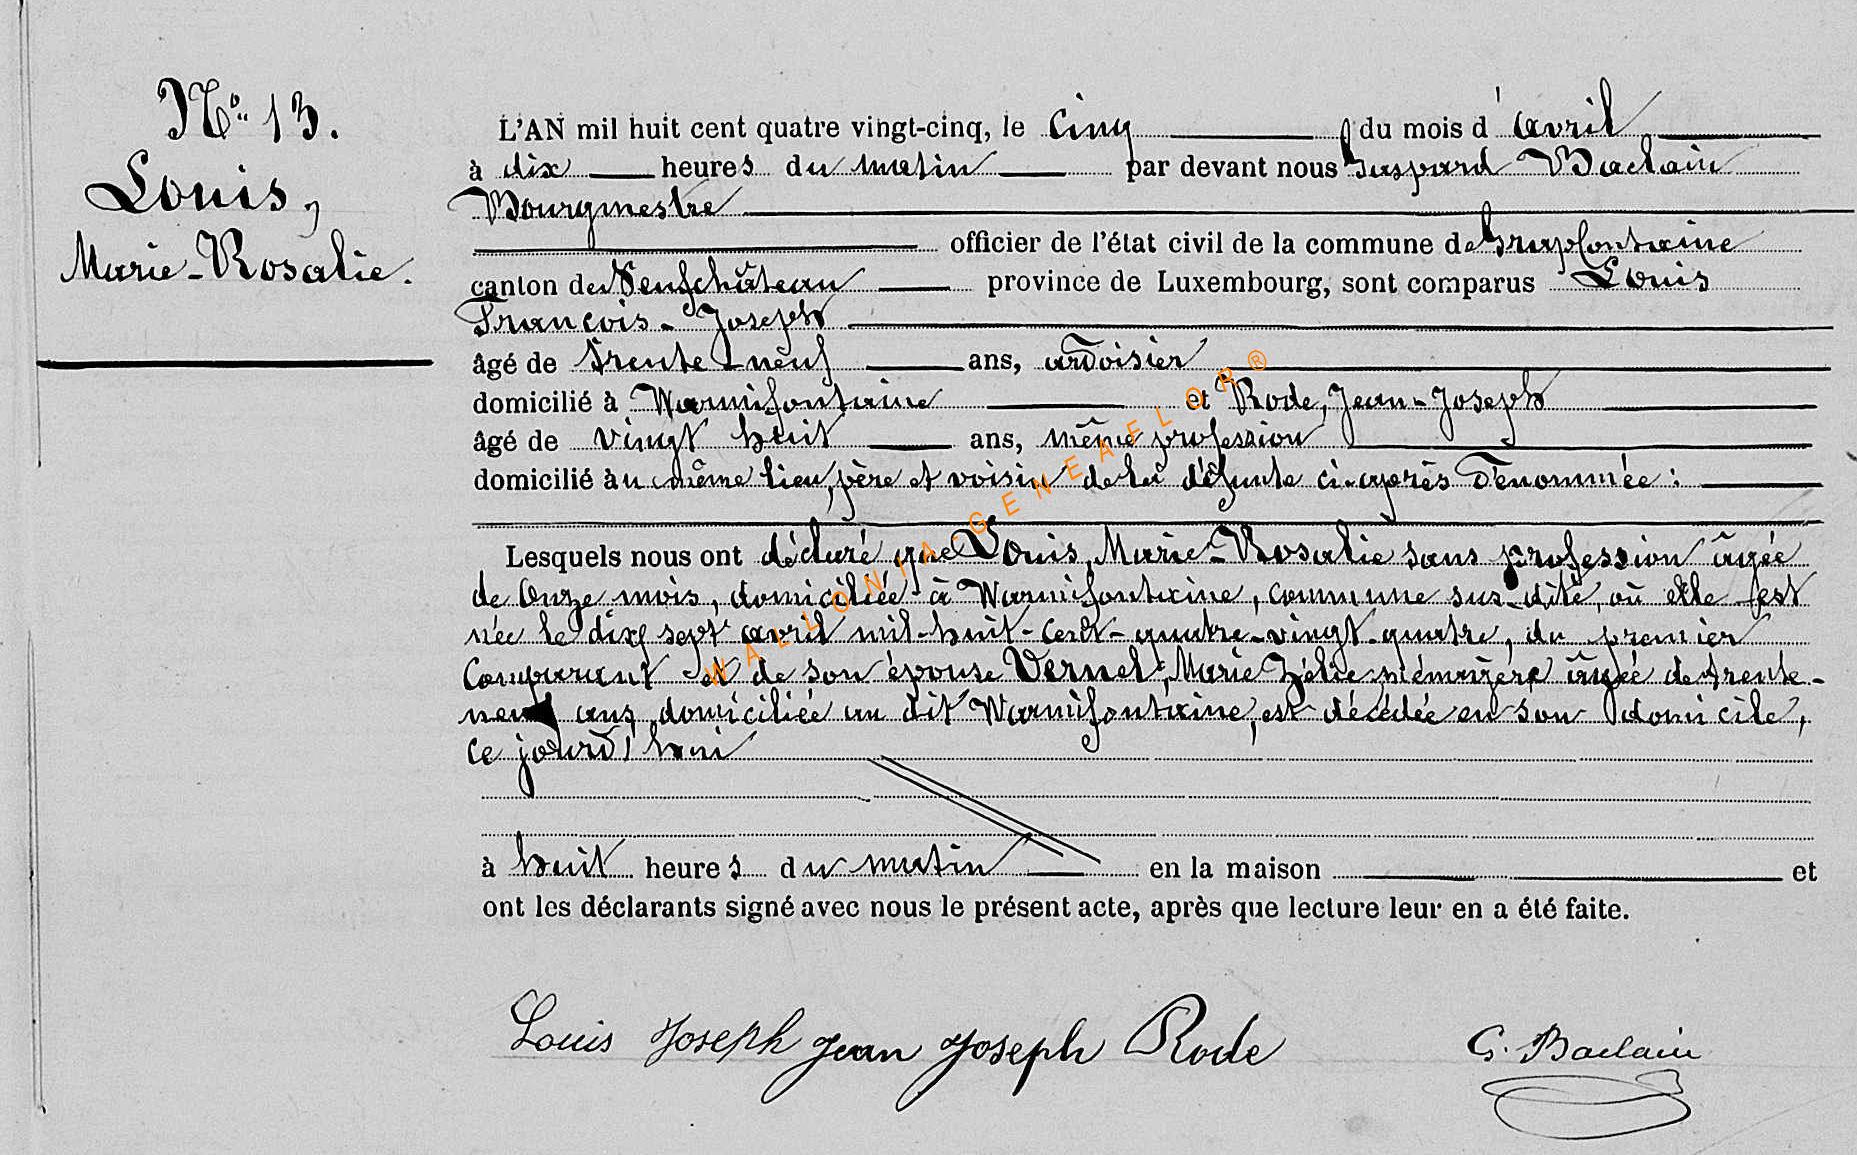 N° 13.
Louis,
Marie-Rosalie.
L'AN mil huit cent quatre vingt-cinq, le cinq du mois d'avril
à dix heures du matin par devant nous Gaspard Baclain
Bourgmestre
officier de l'état civil de la commune de Grapfontaine
canton de Neufchâteau province de Luxembourg, sont comparus Louis
François-Joseph
âgé de trente-neuf ans, ardoisier
domicilié à Warmifontaine et Rode, Jean-Joseph
âgé de vingt huit ans, même profession
domicilié au même lieu, père et voisin de la défunte ci-après dénommée :
Lesquels nous ont déclaré que Louis, Marie-Rosalie sans profession âgée
de Onze mois, domiciliée à Warmifontaine, commune sus-dite, où elle est
née le dix sept avril mil-huit-cent-quatre-vingt-quatre, du premier
Comparant et de son épouse Vernel, Marie Zélie ménagère âgée de trente-
neuf ans, domiciliée au dit Warmifontaine, est décédée en son domicile,
ce jourd'hui
à huit heures du matin en la maison et
ont les déclarants signé avec nous le présent acte, après que lecture leur en a été faite.
Louis Joseph Jean Joseph Rode G. Baclain
WALLONIA-GENEAFLOR®